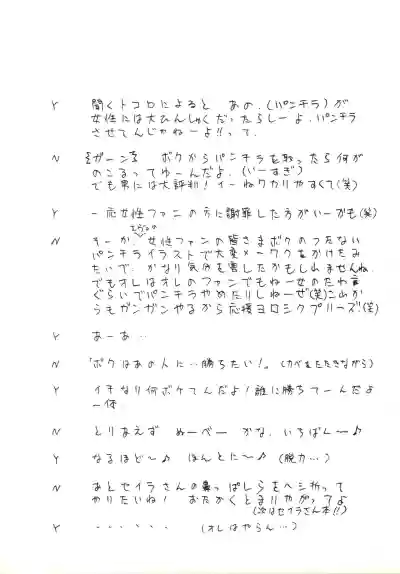 Y 聞くトコロによると あの、(パンチラ)が
女性には大ひんしゅくだったらしーよ、パンチラ
させてんじゃねーよ!!って。
N ガーン ボクからパンチラを取ったら何が
のこるってゆーんだよ。(いーすぎ)
でも男には大評判!イーねワカリやすくて(笑)
Y 一応女性ファンの方に謝罪した方がいーかも(笑)
N そーか、女性ファンの皆さまボクのつたない
パンチライラストで大変メーワクをかけたみ
たいで、かなり気分を害したかもしれませんね、
でもオレはオレのファンでもねー女のたわ言
ぐらいでパンチラやめたりしねーぜ(笑)これか
らもガンガンやるから応援ヨロシクプリーズ!(笑)
Y あーあ…
N 「ボクはあの人に…勝ちたい!」(カベをたたきながら)
Y イキなり何ボケてんだよ!誰に勝ちてーんだよ
一体
N とりあえず めーべー かな、いちばん〜♪
Y なるほど〜♪ ほんとに〜♪ (脱力…)
N あとセイラさんの鼻っぱしらをヘシ折って
やりたいね! おたかくとまりやがってよ
(次はセイラさん本!!)
Y ・・・・・・ (オレはやらん…)